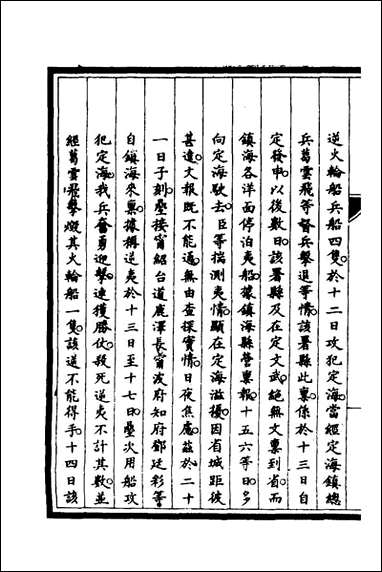 逆火輪船兵船四隻於十二日攻犯定海當經定海鎮總
兵葛雲飛等督兵擊退等情該署縣此稟係於十三日自
定發申以後數日該署縣及在定文武絕無文稟到省而
鎮海各洋面停泊夷船據鎮海縣營稟報十五六等日多
向定海駛去臣等揣測夷情顯在定海滋擾因省城距彼
甚遠文報既不能通無由查探實情日夜焦慮茲於二十
一日子刻疊接甯紹台道鹿澤長甯波府知府鄧廷彩等
自鎮海來稟據稱逆夷於十三日至十七日疊次用船攻
犯定海我兵奮勇迎擊連獲勝仗殺死逆夷不計其數並
經葛雲飛擊燬其火輪船一隻該逆不能得手十四日該